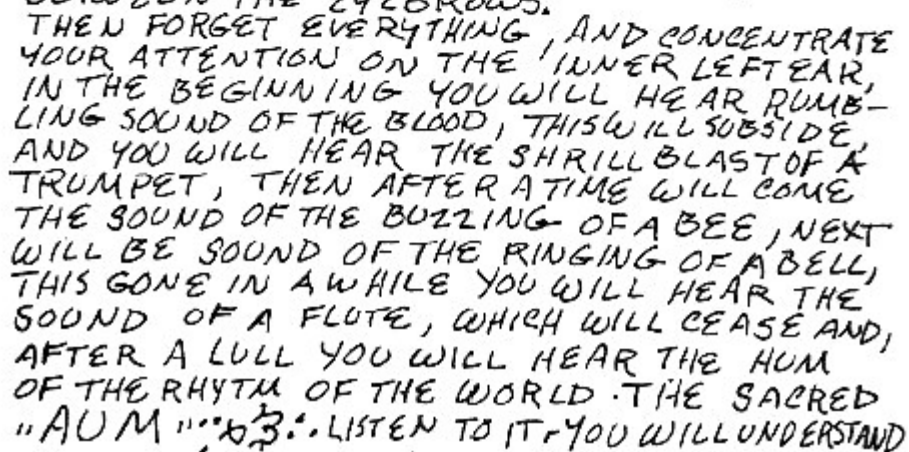 BETWEEN THE EYEBROWS.
THEN FORGET EVERYTHING, AND CONCENTRATE
YOUR ATTENTION ON THE INNER LEFT EAR,
IN THE BEGINNING YOU WILL HEAR RUMB-
LING SOUND OF THE BLOOD, THIS WILL SUBSIDE,
AND YOU WILL HEAR THE SHRILL BLAST OF A
TRUMPET, THEN AFTER A TIME WILL COME
THE SOUND OF THE BUZZING OF A BEE, NEXT
WILL BE SOUND OF THE RINGING OF A BELL,
THIS GONE IN A WHILE YOU WILL HEAR THE
SOUND OF A FLUTE, WHICH WILL CEASE AND,
AFTER A LULL YOU WILL HEAR THE HUM
OF THE RHYTM OF THE WORLD. THE SACRED
"AUM" LISTEN TO IT - YOU WILL UNDERSTAND